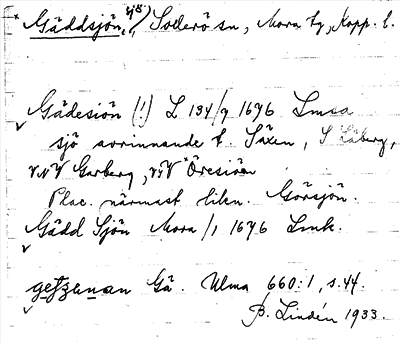 Gäddsjön, sjö, Sollerö sn, Mora tg, Kopp. l.
Gädesiön (!) L 134/9 1676 Lmsa
sjö avrinnande t. Säxen, S Läberg,
VNV Garberg, V Öresiön
Plac. närmast likn. Görsjön.
Gädd Sjön Mora /1 1676 Lmk.
Gä. Ulma 660:1, s. 44.
B. Lindén 1933.